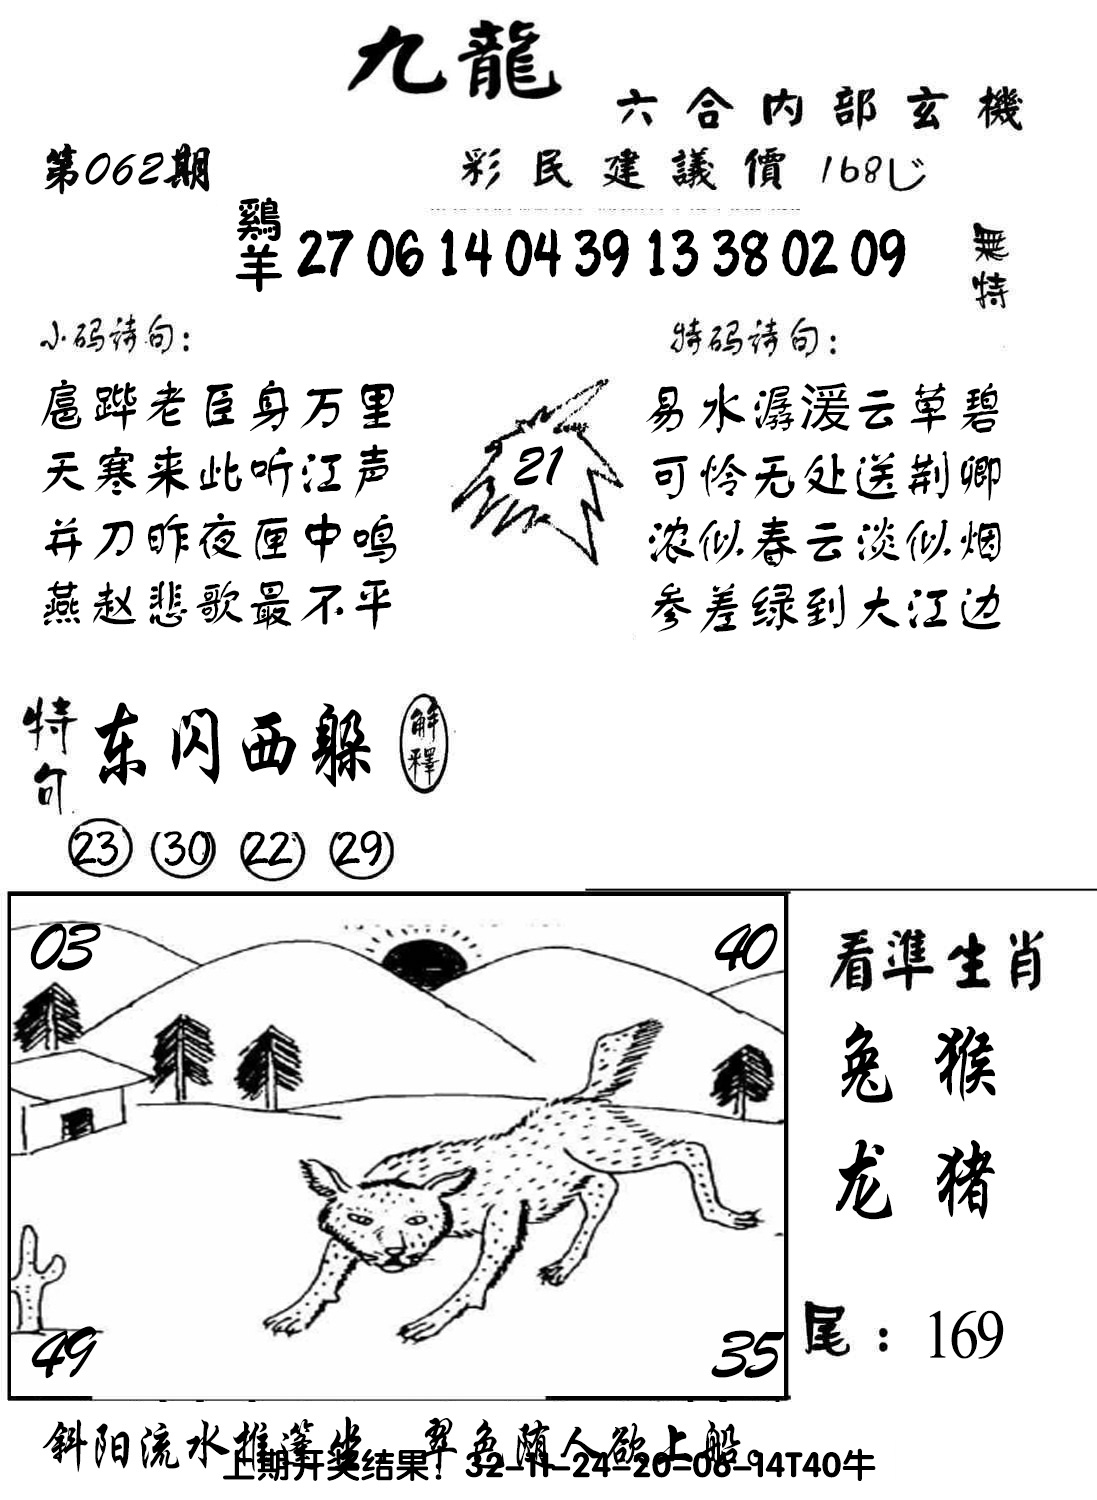 九龍
六合内部玄機
第062期
彩民建議價 168
鷄羊 27 06 14 04 39 13 38 02 09
無特
小码诗句：
扈跸老臣身万里
天寒来此听江声
并刀昨夜匣中鸣
燕赵悲歌最不平
21
特码诗句：
易水潺湲云草碧
可怜无处送荆卿
浓似春云淡似烟
参差绿到大江边
特句 东闪西躲 解釋
23 30 22 29
03 40
49 35
看準生肖
兔 猴
龙 猪
尾：169
斜阳流水推篷坐 翠色随人欲上船。
上期开奖结果：32-11-24-20-08-14T40牛